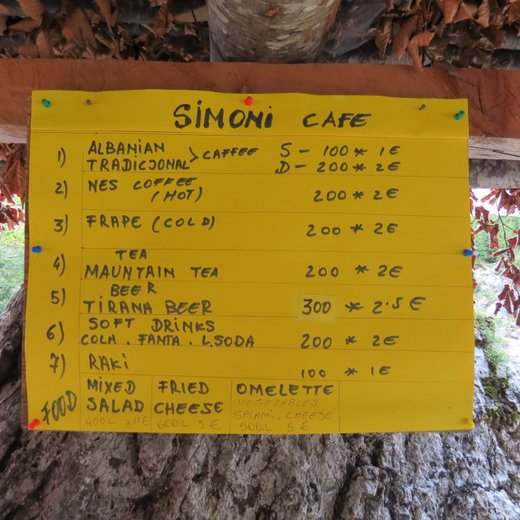 SIMONI CAFE
1) ALBANIAN TRADICJONAL > CAFFEE S - 100 * 1€
D - 200 * 2€
2) NES COFFEE (HOT) 200 * 2€
3) FRAPE (COLD) 200 * 2€
4) TEA
MAUNTAIN TEA 200 * 2€
5) BEER
TIRANA BEER 300 * 2.5€
6) SOFT DRINKS
COLA . FANTA . L.SODA 200 * 2€
7) RAKI 100 * 1€
FOOD
MIXED
SALAD
400L
FRIED
CHEESE
600L 5€
OMELETTE
VEGETABLES
SALAMI . CHEESE
500L 5€